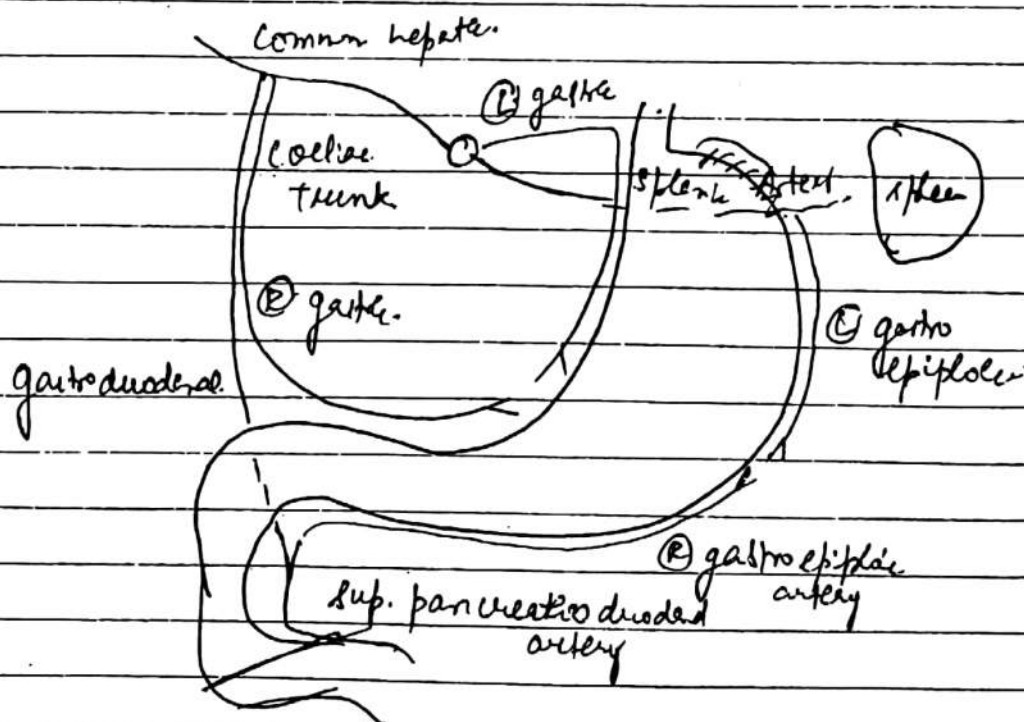 Common hepatic.
Ⓛ gastric
Coeliac
trunk
Splenic Artery
spleen
Ⓡ gastric.
Ⓛ gastro
epiploic
gastroduodenal.
Ⓡ gastroepiploic
artery
Sup. pancreatico duodenal
artery